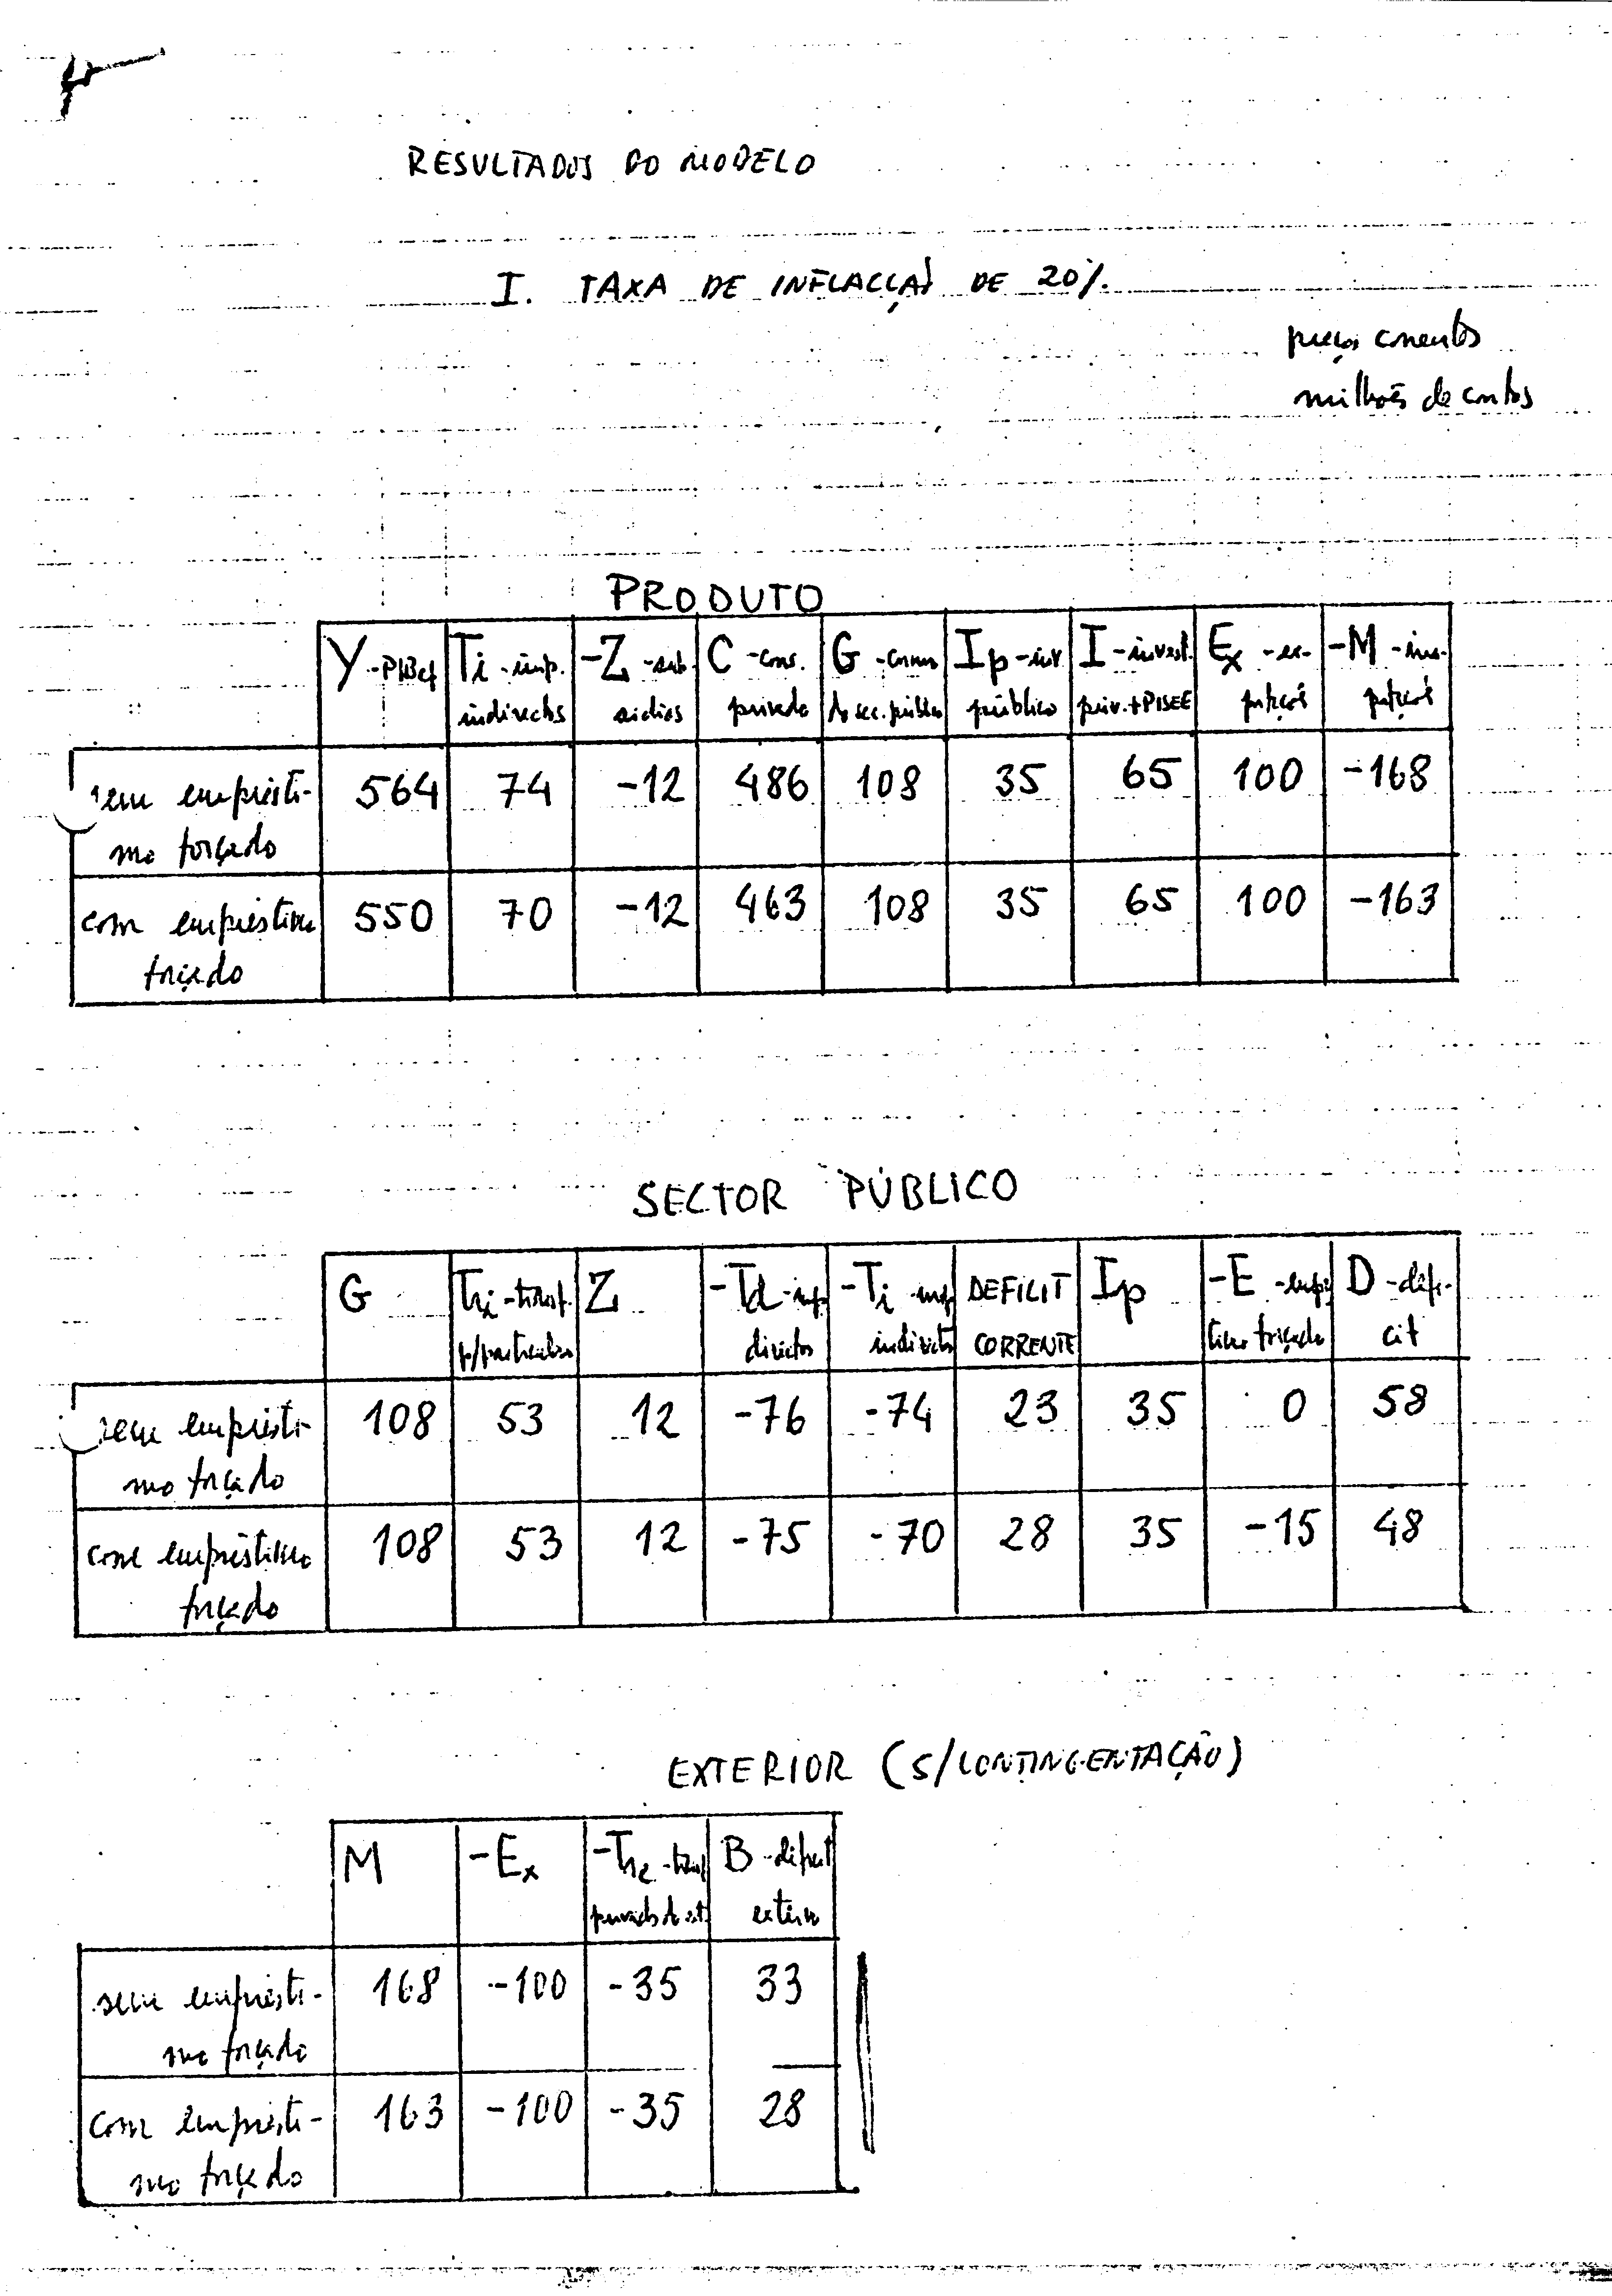 RESULTADOS DO MODELO
I. TAXA DE INFLACÇÃO DE 20%.
preços correntes
milhões de contos
PRODUTO
Y-PIBcf Ti-imp. indirectos -Z-subsidios C-cons. privado G-consu do sec. público Ip-inv. público I-invest. priv.+PISEE Ex-exportações -M-importações
sem empréstimo forçado 564 74 -12 486 108 35 65 100 -168
com empréstimo forçado 550 70 -12 463 108 35 65 100 -163
SECTOR PÚBLICO
G Tri-transf. p/particulares Z -Td-imp directos -Ti-imp indirectos DEFICIT CORRENTE Ip -E-empréstimo forçado D-deficit
sem empréstimo forçado 108 53 12 -76 -74 23 35 0 58
com empréstimo forçado 108 53 12 -75 -70 28 35 -15 48
EXTERIOR (S/CONTINGENTAÇÃO)
M -Ex -Tre-transf privads do ext. B-deficit externo
sem empréstimo forçado 168 -100 -35 33
com empréstimo forçado 163 -100 -35 28